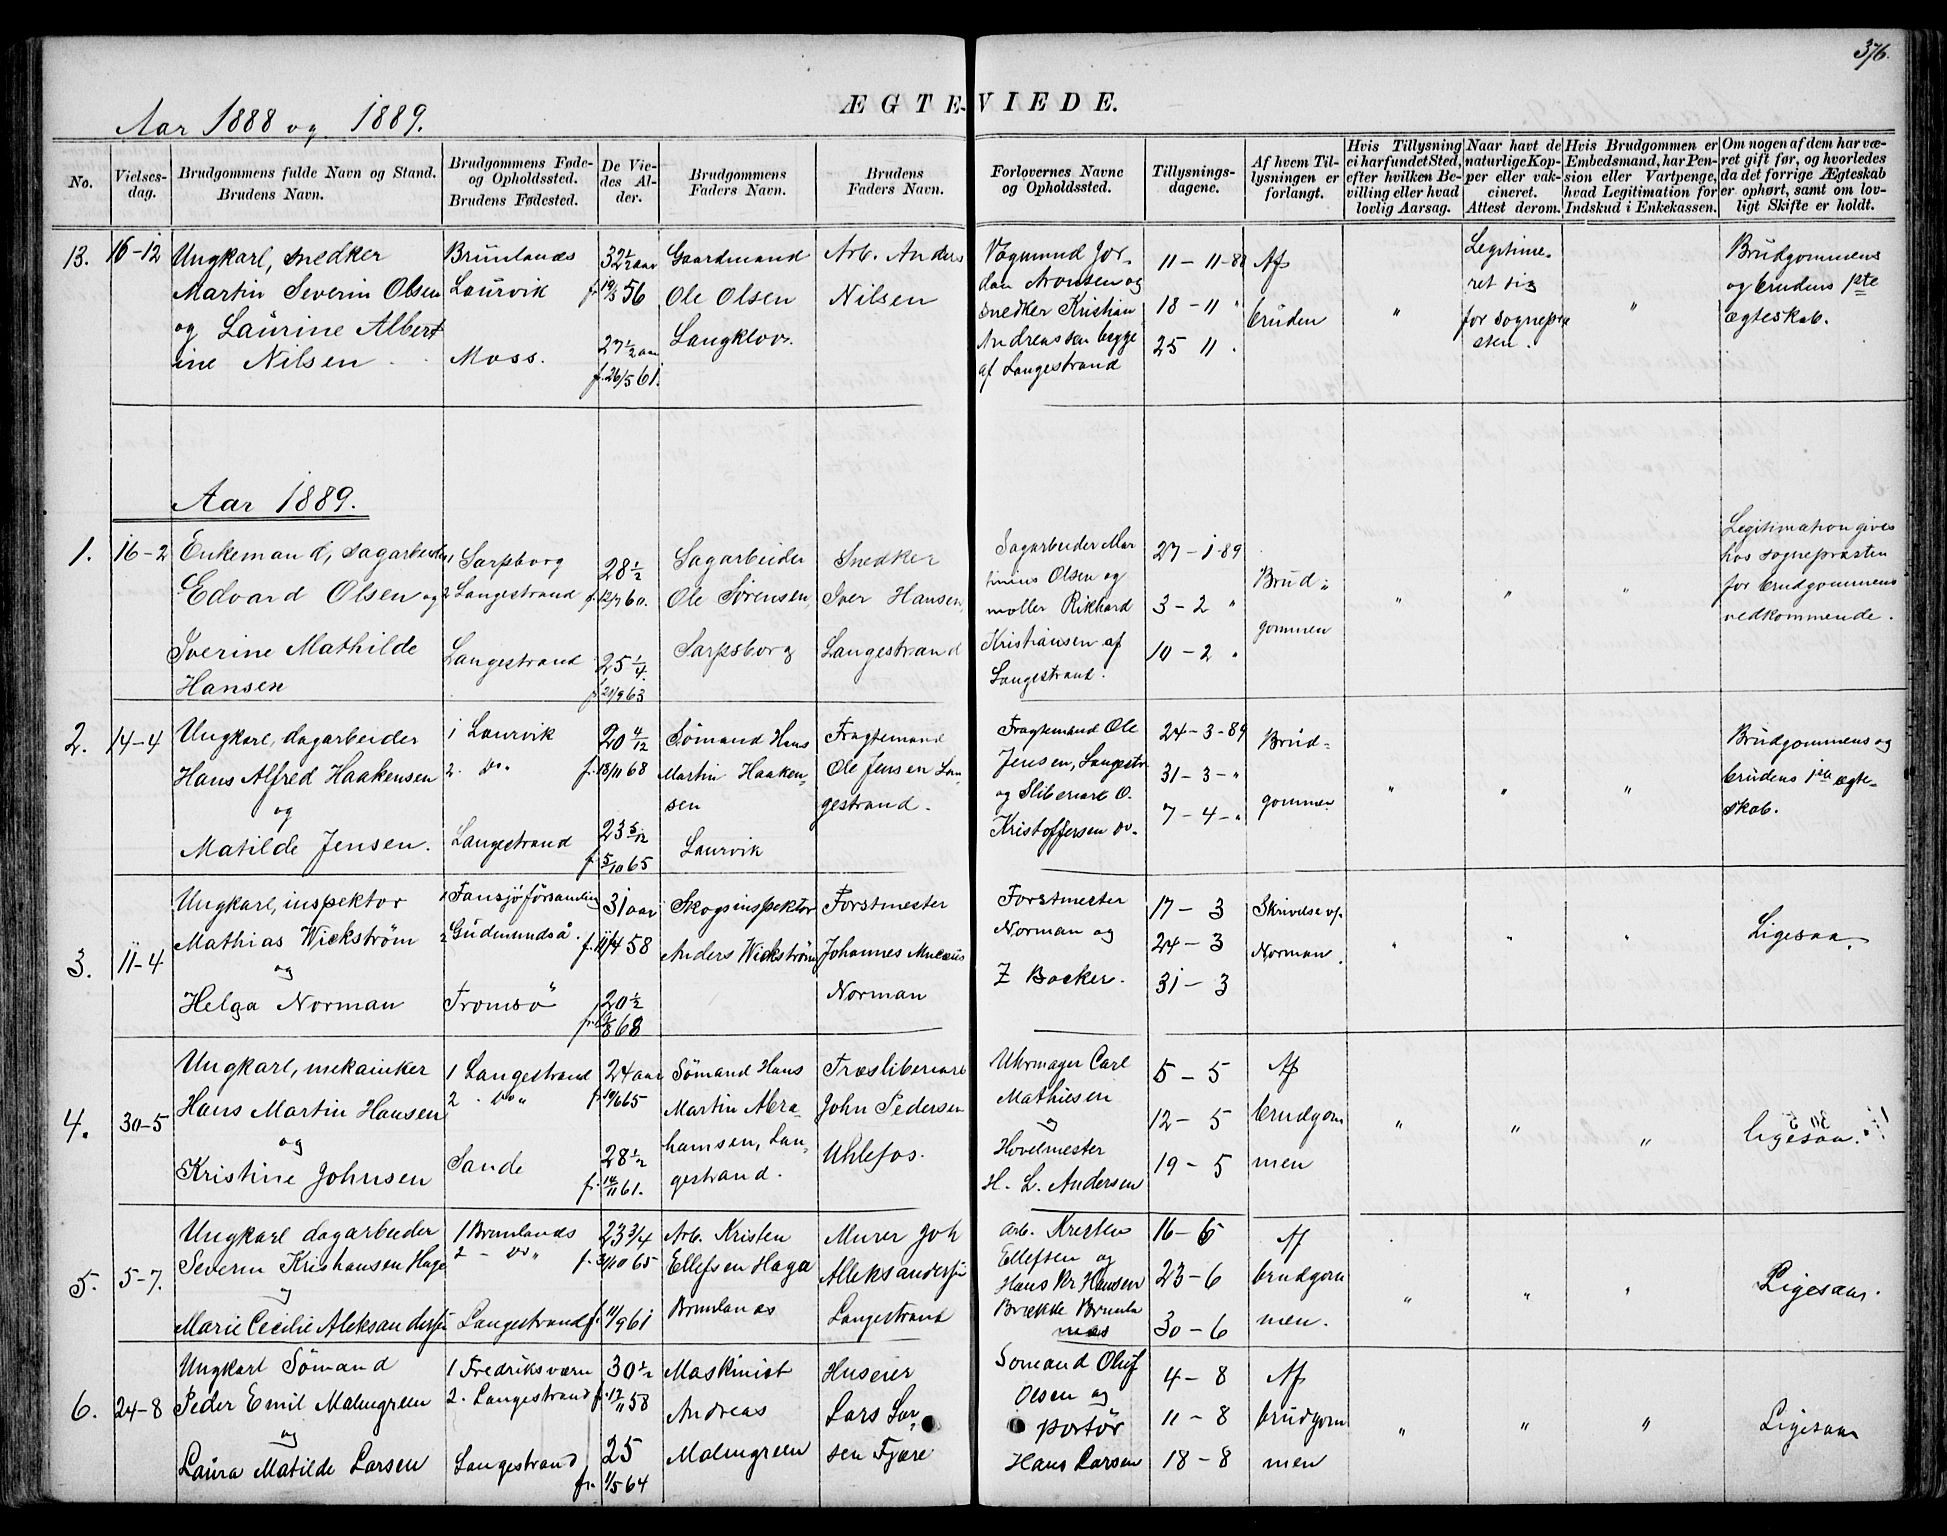 376.
Aar 1888 og 1889.
ÆGTEVIEDE.
No.
Vielses-
dag.
Brudgommens fulde Navn og Stand.
Brudens Navn.
Brudgommens Føde-
og Opholdssted.
Brudens Fødested.
De Vie-
des Al-
der.
Brudgommens
Faders Navn.
Brudens
Faders Navn.
Forlovernes Navne
og Opholdssted.
Tillysnings-
dagene.
Af hvem Til-
lysningen er
forlangt.
Hvis Tillysning
ei har fundet Sted,
efter hvilken Be-
villing eller hvad
lovlig Aarsag.
Naar havt de
naturlige Kop-
per eller vak-
cineret.
Attest derom.
Hvis Brudgommen er
Embedsmand, har Pen-
sion eller Vartpenge,
hvad Legitimation for
Indskud i Enkekassen.
Om nogen af dem har væ-
ret gift før, og hvorledes
da det forrige Ægteskab
er ophørt, samt om lov-
ligt Skifte er holdt.
13.
16-12
Ungkarl, snedker
Martin Severin Olsen
og Laurine Albert
ine Nilsen
Brunlanæs
Laurvik
Moss.
32 1/2 aar
f. 19/3 56
27 1/2 aar
f. 26/5 61.
Gaardmand
Ole Olsen
Langklov.
Arb. Anders
Nilsen
Vognmnd Jor-
dan Aronsen og
snedker Kristian
Andreassen begge
af Langestrand
11-11-88
18-11 "
25 11 .
Af
bruden
"
Legitime-
ret sig
for sognepræ
sten.
"
Brudgommens
og brudens 1ste
ægteskab.
Aar 1889.
1.
16-2
Enkemand, sagarbeider
Edvard Olsen og
Iverine Mathilde
Hansen
1 Sarpsborg
2 Langestrand
Langestrand
28 1/2
f. 12/7 60.
25 1/4.
f. 21/9 63
Sagarbeider
Ole Sørensen,
Sarpsborg
Snedker
Iver Hansen,
Langestrand
Sagarbeider Mar
tinius Olsen og
møller Rikhard
Kristiansen af
Langestrand.
27-1-89
3-2 "
10-2 "
Brud-
gommen
"
"
"
Legitimation gives
hos sognepræsten
for brudgommens
vedkommende.
2.
14-4
Ungkarl, dagarbeider
Hans Alfred Haakensen
og
Matilde Jensen.
1 Laurvik
2. Do"
Langestrand
20 4/12
f. 18/11 68
23 5/12
f. 5/10 65
Sømand Hans
Martin Haaken-
sen
Laurvik
Fragtemand
Ole Jensen Lan-
gestrand.
Fragtemand Ole
Jensen, Langestr
og Sliberiarb O.
Kristoffersen do.
24-3-89
31-3-"
7-4-"
Brud-
gommen
"
"
"
Brudgommens og
brudens 1ste ægte-
skab.
3.
11-4
Ungkarl, inspektor
Mathias Wickstrøm
og
Helga Norman
1 Tansjö församling
2 Gudmundså.
Tromsö
31 aar
f. 11/4 58
20 1/2
8 68
Skogsinspektör
Anders Wickstrøm
Forstmester
Johannes
Norman
Forstmester
Norman og
Z Backer.
17-3
24-3
31-3
Skrivelse af
Norman.
"
"
"
Ligesaa.
4.
30-5
Ungkarl, mekainker
Hans Martin Hansen
og
Kristine Johnsen
1 Langestrand
2. Do "
Sande
24 aar
f. 19/6 65
28 1/2
f. 14/11 61.
Sømand Hans
Martin Abra-
hamsen, Lan-
gestrand.
Træsliberiarb
John Pedersen
Uhlefos.
Uhrmager Carl
Mathiesen
og
Hovelmester
H. L. Andersen
5-5
12-5
19-5
Af
brudgom
men
"
"
"
ligesaa.
5.
5-7.
Ungkarl dagarbeider
Severin Kristiansen Haga
og
Marie Cecilie Aleksandersen
1 Brunlanæs
2 - Do "
Langestrand
23 3/4
f. 31/10 65
f. 11/9 61
Arb. Kristen
Ellefsen Haga
Brunlanæs
Murer Joh
Aleksandersen
Langestrand
Arb. Kresten
Ellefsen og
Hans Kr Hansen
Brække Brunla
næs
16-6
23-6
30-6
Af
brudgom
men.
"
"
"
Ligesaa.
6.
24-8
Ungkarl Sømand
Peder Emil Malmgreen
og
Laura Matilde Larsen
1 Fredriksværn
2. Langestrand
Langestrand
30 1/2
f. 12/11 58
25
fr. 1/5 64
Maskinist
Andreas
Malmgreen
Huseier
Lars Lar
sen Fjære
Sømand Oluf
Olsen og
portør
Hans Larsen
4-8
11-8
18-8
Af
brudgom
men
"
"
"
Ligesaa